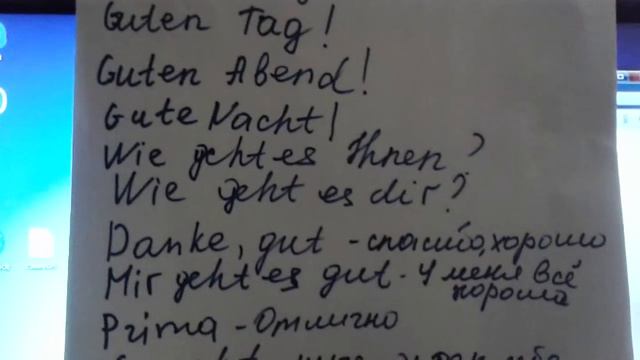 Guten Tag!
Guten Abend!
Gute Nacht!
Wie geht es Ihnen?
Wie geht es dir?
Danke, gut - спасибо, хорошо
Mir geht es gut - У меня всё
хорошо
Prima - Отлично